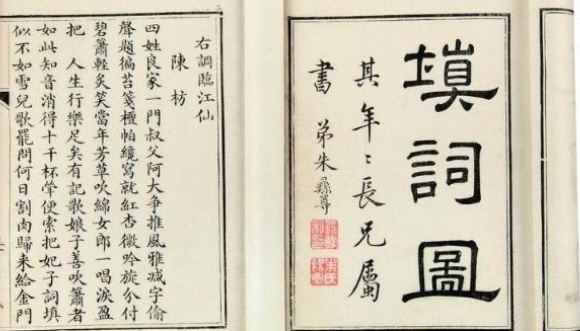 填詞圖
其年〻長兄屬
書 弟朱彝尊
右調臨江仙
陳枋
四姓良家一門叔父阿大爭推風雅减字偷
聲題徧苔箋檀帕纔寫就紅杏微吟旋分付
碧簫輕炙笑當年芳草吹綿女郎一唱淚盈
把 人生行樂足矣有記歌娘子善吹簫者
如此知音消得十千杯斝便索把妃子詞填
似不如雪兒歌罷問何日割肉歸来給金門